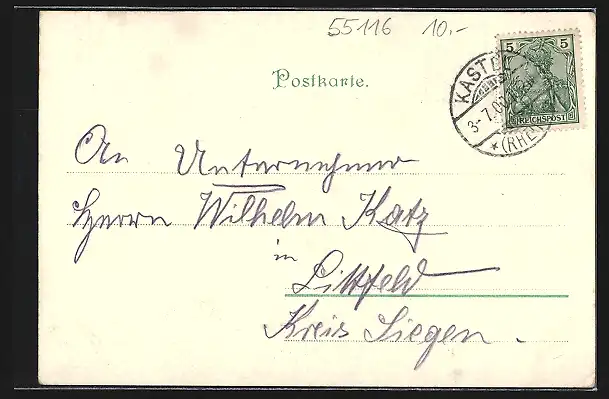 55116 10.-
Postkarte.
5 5
REICHSPOST
KASTEL
3-7.00
*(RHE
An Unternehmer
Herrn Wilhelm Katz
in
Littfeld
Kreis Siegen.